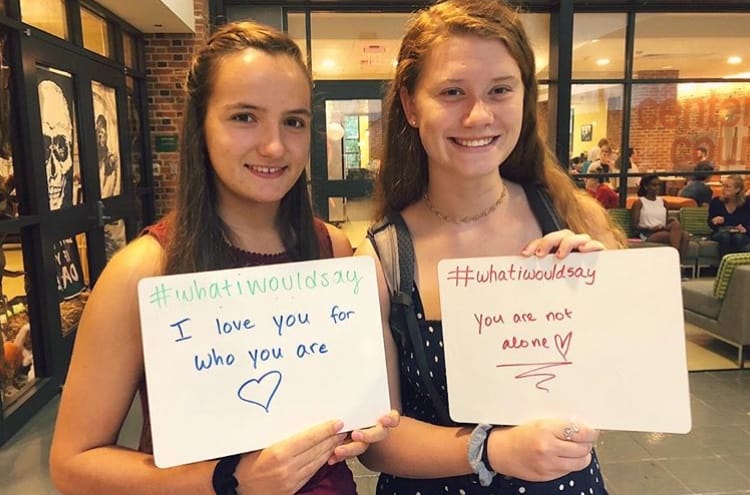 #whatiwouldsay
I love you for
who you are
#whatiwouldsay
you are not
alone
center
cou
IF Y
DA